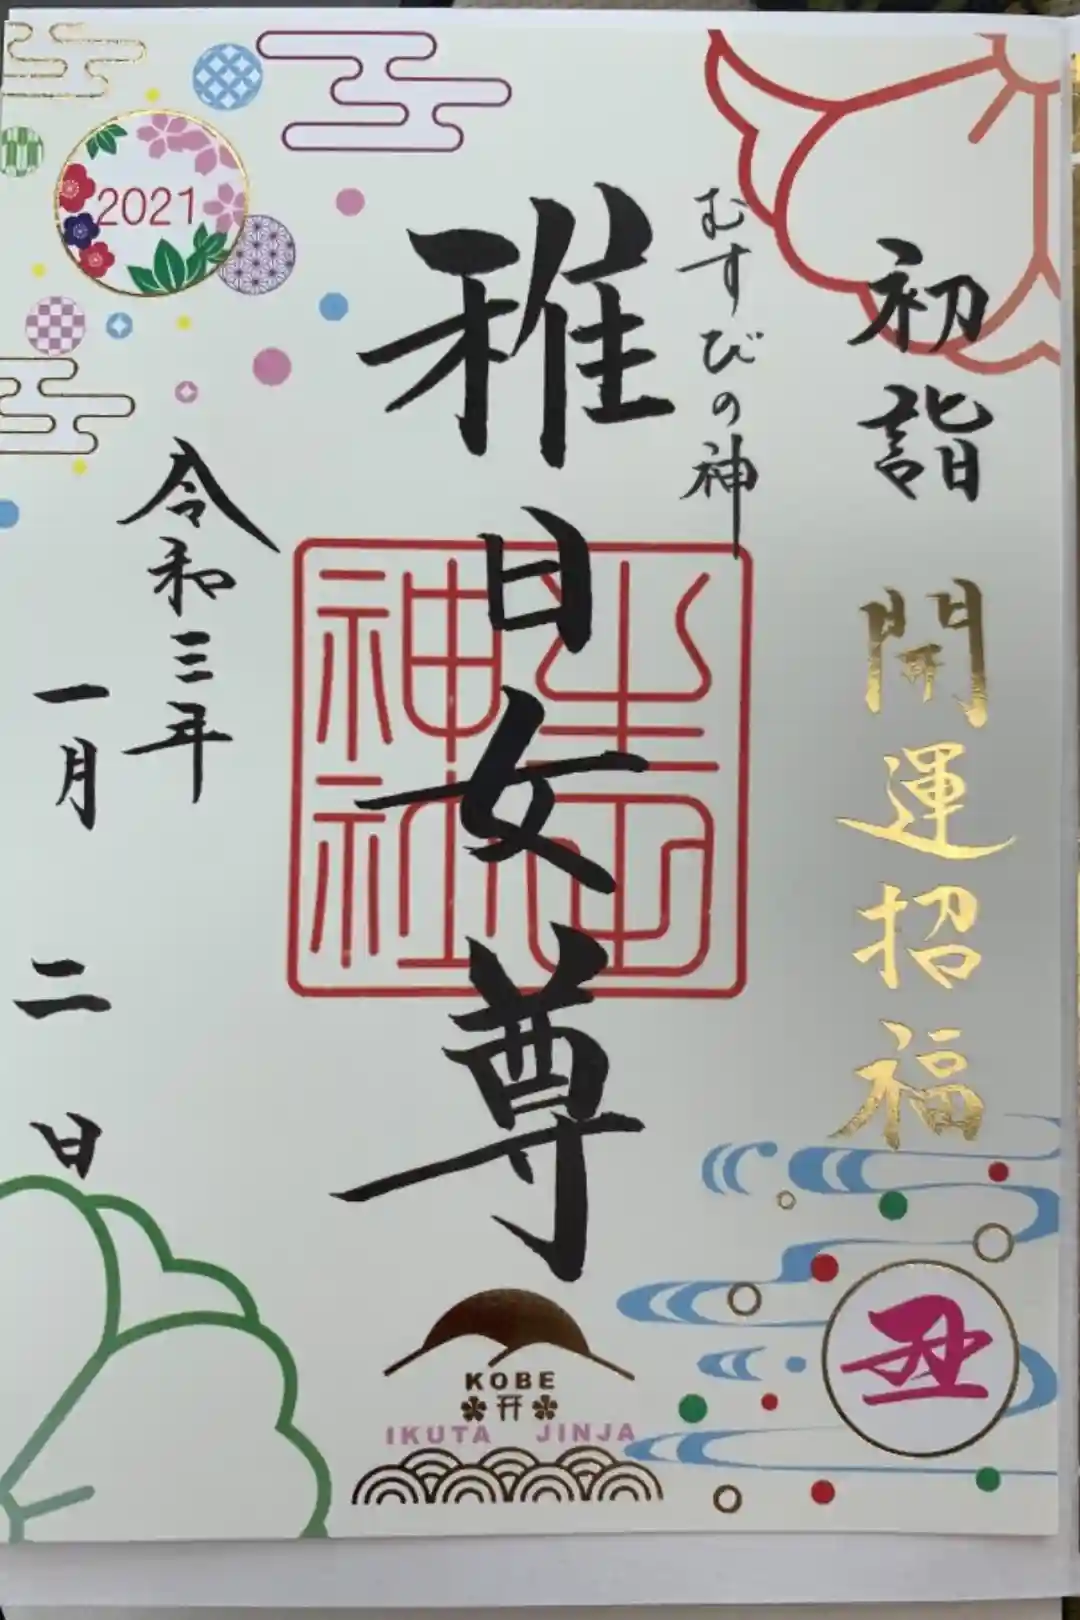 初詣 開運招福
むすびの神
稚日女尊
生田
神社
令和三年
一月 二 日
2021
丑
KOBE
IKUTA JINJA